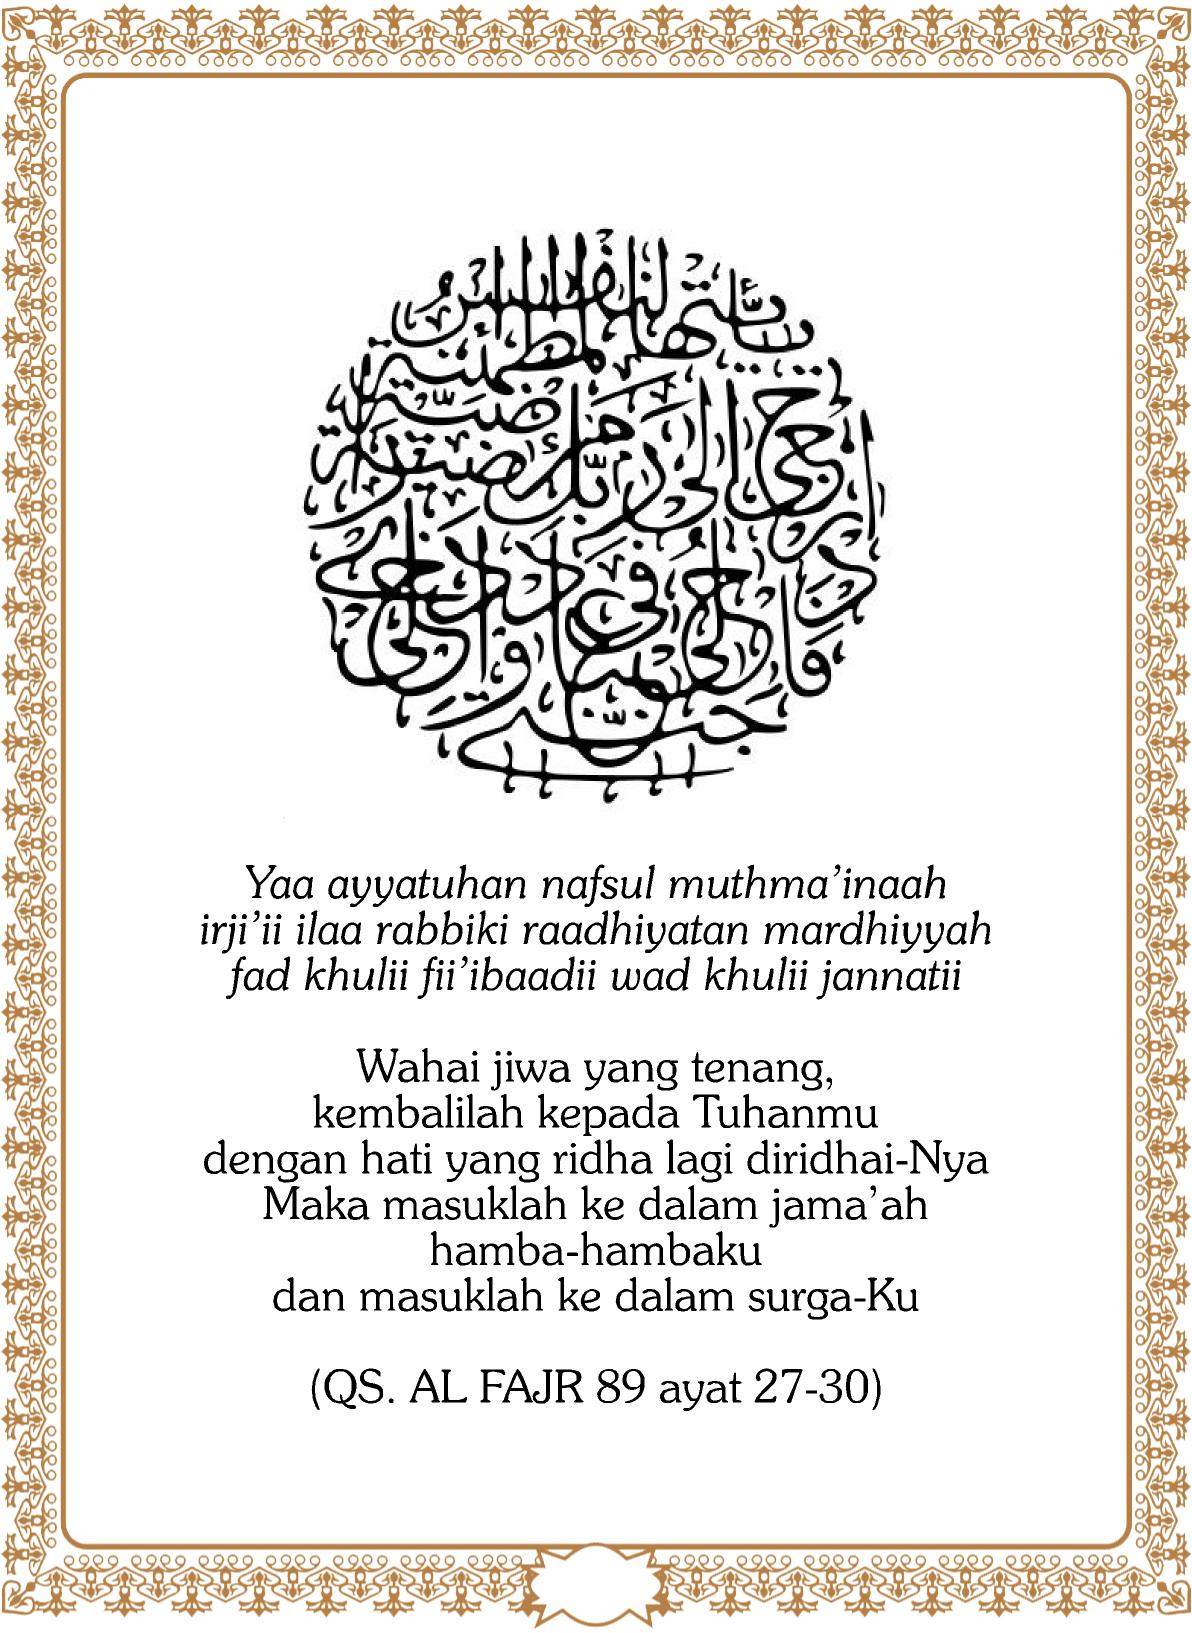 يٰأيتها النفس المطمئنة
ارجعي الى ربك راضية مرضية
فادخلي في عبادي وادخلي
جنتي
Yaa ayyatuhan nafsul muthma’inaah
irji’ii ilaa rabbiki raadhiyatan mardhiyyah
fad khulii fii’ibaadii wad khulii jannatii
Wahai jiwa yang tenang,
kembalilah kepada Tuhanmu
dengan hati yang ridha lagi diridhai-Nya
Maka masuklah ke dalam jama’ah
hamba-hambaku
dan masuklah ke dalam surga-Ku
(QS. AL FAJR 89 ayat 27-30)